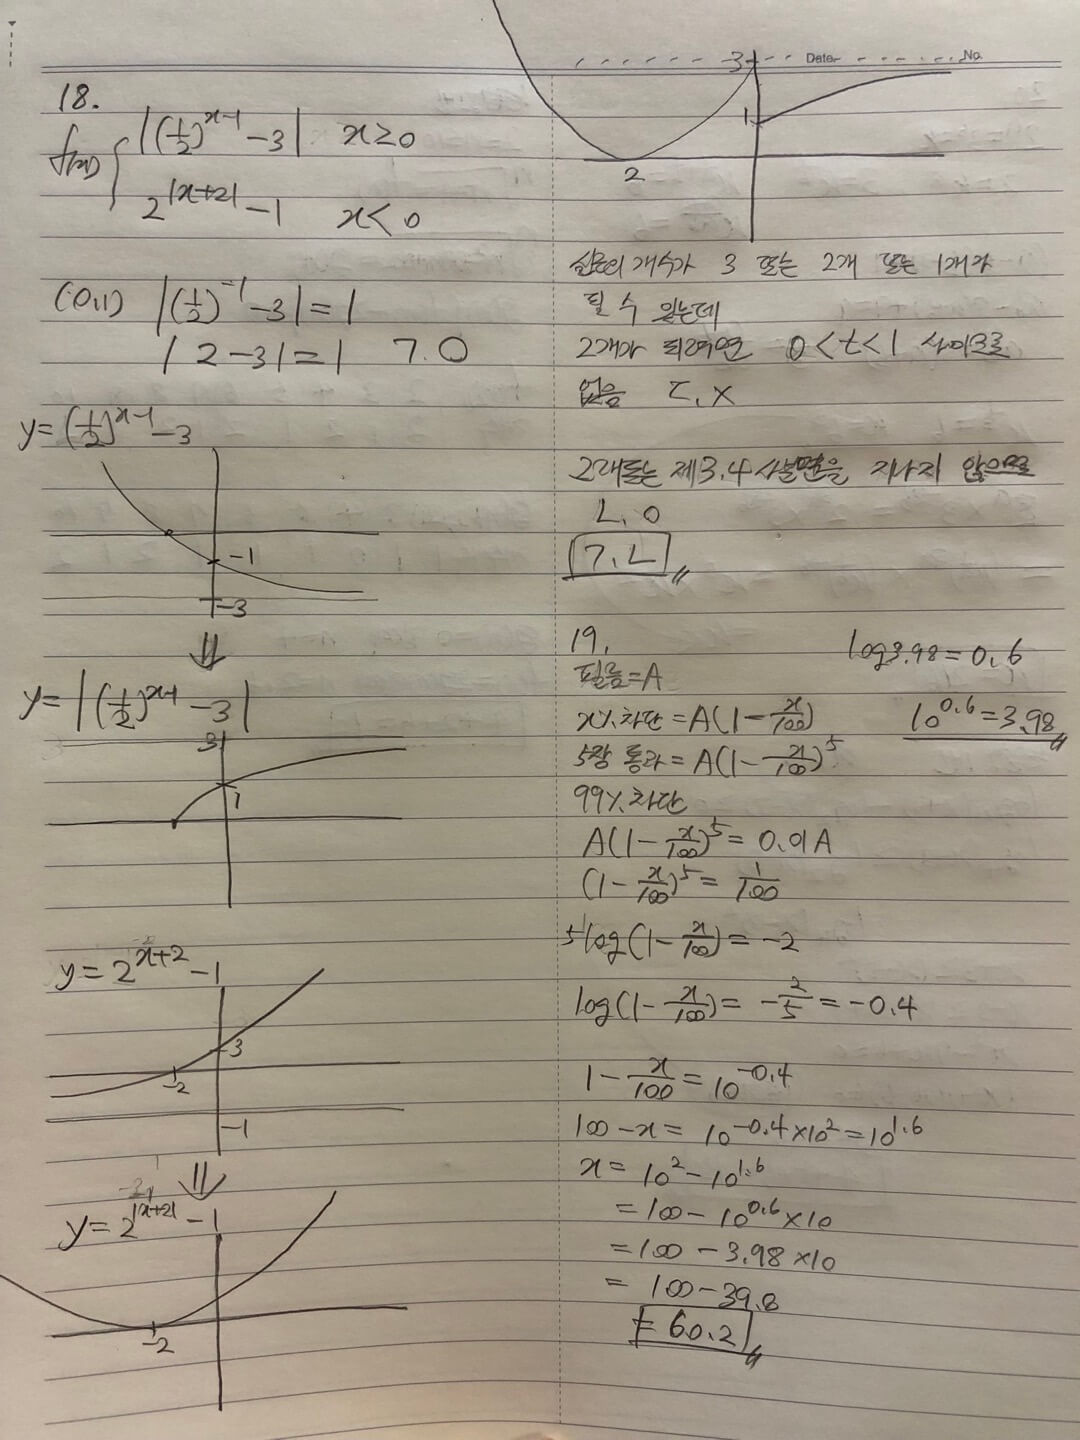 18.
f(x) { |(1/2)^{x-1} - 3| x≥0
2^{|x+2|} - 1 x<0
(0,1) |(1/2)^{-1} - 3| = 1
|2-3| = 1 ㄱ. O
y = (1/2)^{x-1} - 3
-1
-3
⇓
y = |(1/2)^{x-1} - 3|
3
1
y = 2^{x+2} - 1
3
-2
-1
⇓
y = 2^{|x+2|} - 1
-2
Date No.
3
1
2
실근의 개수가 3 또는 2개 또는 1개가
될 수 있는데
2개가 되려면 0<t<1 사이므로
없음 ㄷ. X
그래프는 제3.4사분면을 지나지 않으므로
ㄴ. O
ㄱ. ㄴ
19.
필름=A
x% 차단 = A(1 - x/100)
5장 통과 = A(1 - x/100)^5
99% 차단
A(1 - x/100)^5 = 0.01A
(1 - x/100)^5 = 1/100
5log(1 - x/100) = -2
log(1 - x/100) = -2/5 = -0.4
1 - x/100 = 10^{-0.4}
100 - x = 10^{-0.4} × 10^2 = 10^{1.6}
x = 10^2 - 10^{1.6}
= 100 - 10^{0.6} × 10
= 100 - 3.98 × 10
= 100 - 39.8
= 60.2
log3.98 = 0.6
10^{0.6} = 3.98